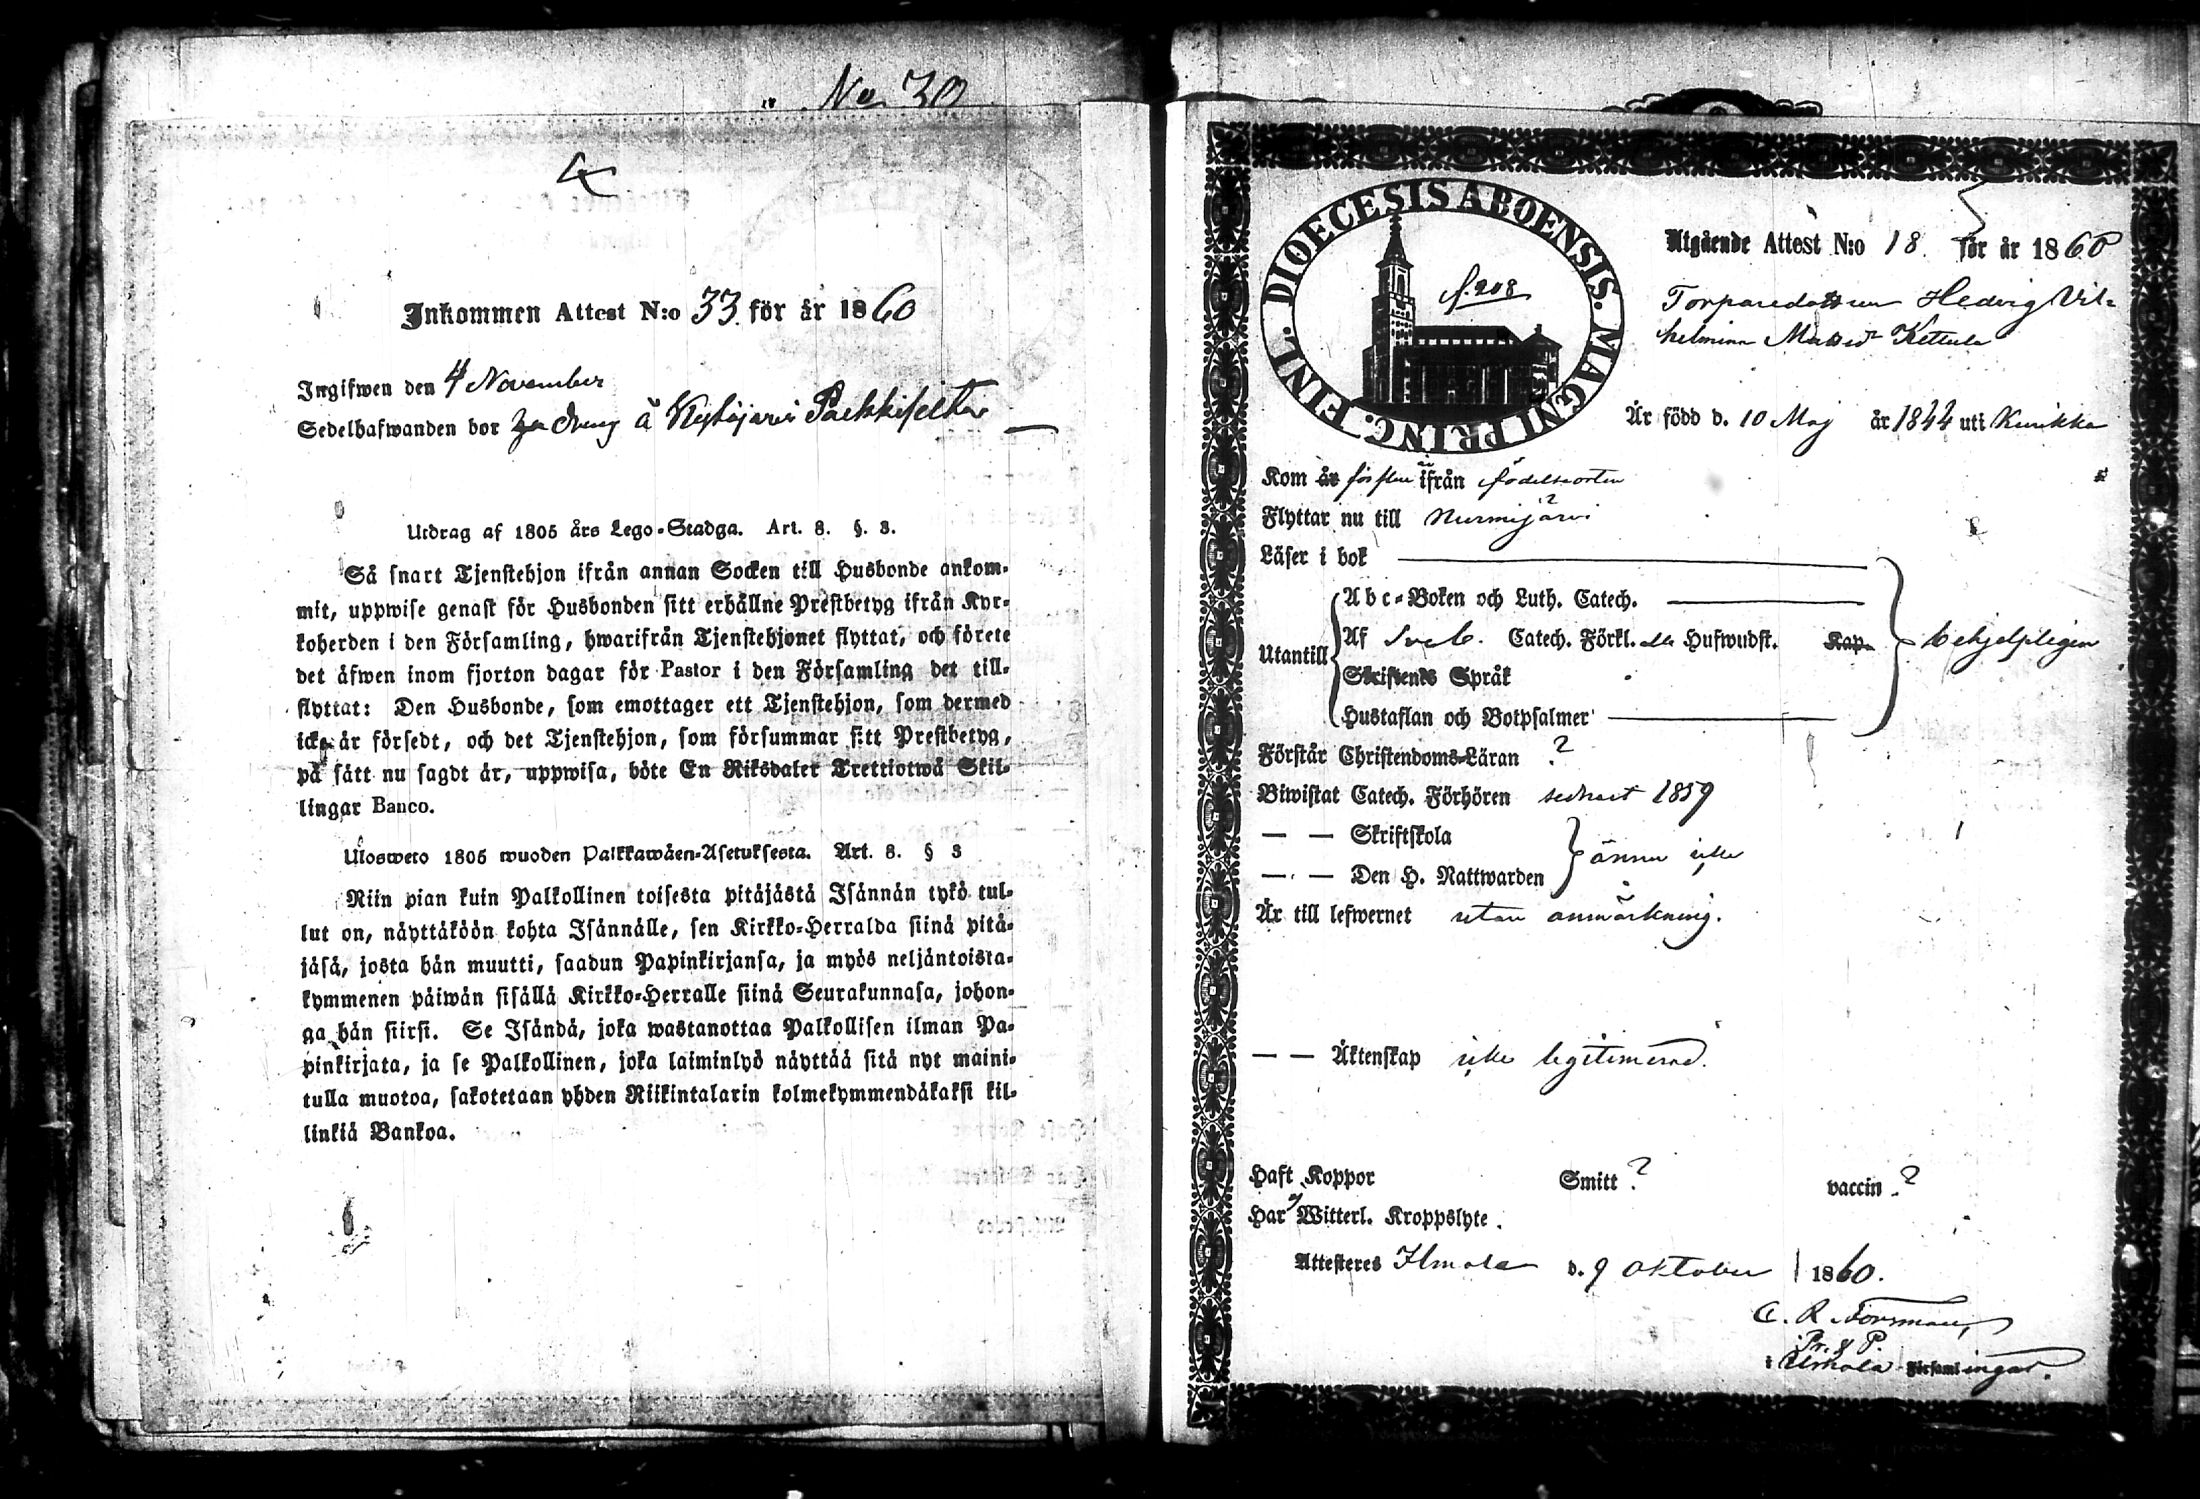 No 30
Inkommen Attest N:o 33. för år 1860
Ingifwen den 4 November
Sedelhafwanden bor å
Utdrag af 1805 års Lego-Stadga. Art. 8. §. 3.
Så snart Tjenstehjon ifrån annan Socken till Husbonde ankom-
mit, uppwise genast för Husbonden sitt erhållne Prestbetyg ifrån Kyr-
koherden i den Församling, hwarifrån Tjenstehjonet flyttat, och förete
det äfwen inom fjorton dagar för Pastor i den Församling det till-
flyttat: Den Husbonde, som emottager ett Tjenstehjon, som dermed
icke är försedt, och det Tjenstehjon, som försummar sitt Prestbetyg,
på sätt nu sagdt är, uppwisa, böte En Riksdaler Trettiotwå Skil-
lingar Banco.
Ulosweto 1805 wuoden Palkkawäen-Asetuksesta. Art. 8. § 3
Niin pian kuin Palkollinen toisesta pitäjästä Isännän tykö tul-
lut on, näyttäköön kohta Isännälle, sen Kirkko-Herralda siinä pitä-
jäsä, josta hän muutti, saadun Papinkirjansa, ja myös neljäntoista-
kymmenen päiwän sisällä Kirkko-Herralle siinä Seurakunnasa, johon-
ga hän siirsi. Se Isändä, joka wastanottaa Palkollisen ilman Pa-
pinkirjata, ja se Palkollinen, joka laiminlyö näyttää sitä nyt maini-
tulla muotoa, sakotetaan yhden Riikintalarin kolmekymmendäkaksi kil-
linkiä Bankoa.
DIOECESIS ABOENSIS. MAGNI PRINC. FINL.
f. 208
Utgående Attest N:o 18. för år 1860
Torparedottren Hedvig Vil-
helmina Mattsdr Kettula
Är född d. 10 Maj år 1844 uti Kurikka
Kom år ifrån födelseorten
Flyttar nu till Nurmijärvi
Läser i bok
Abc-Boken och Luth. Catech.
Utantill Af Sveb. Catech. Förkl. alla Hufwudst. Kap. behjelpligen
Skriftens Språk
Hustaflan och Botpsalmer
Förstår Christendoms-Läran ?
Biwistat Catech. Förhören sednast 1859
— — Skriftskola
— — Den H. Nattwarden ännu icke
Är till lefwernet utan anmärkning.
— — Äktenskap icke legitimerad.
Haft Koppor Smitt ? vaccin ?
Har Witterl. Kroppslyte.
Attesteres Ilmola d. 9 Oktober 1860.
C. R. Forsman,
Pr. & P.
i Ilmola Församlingar.